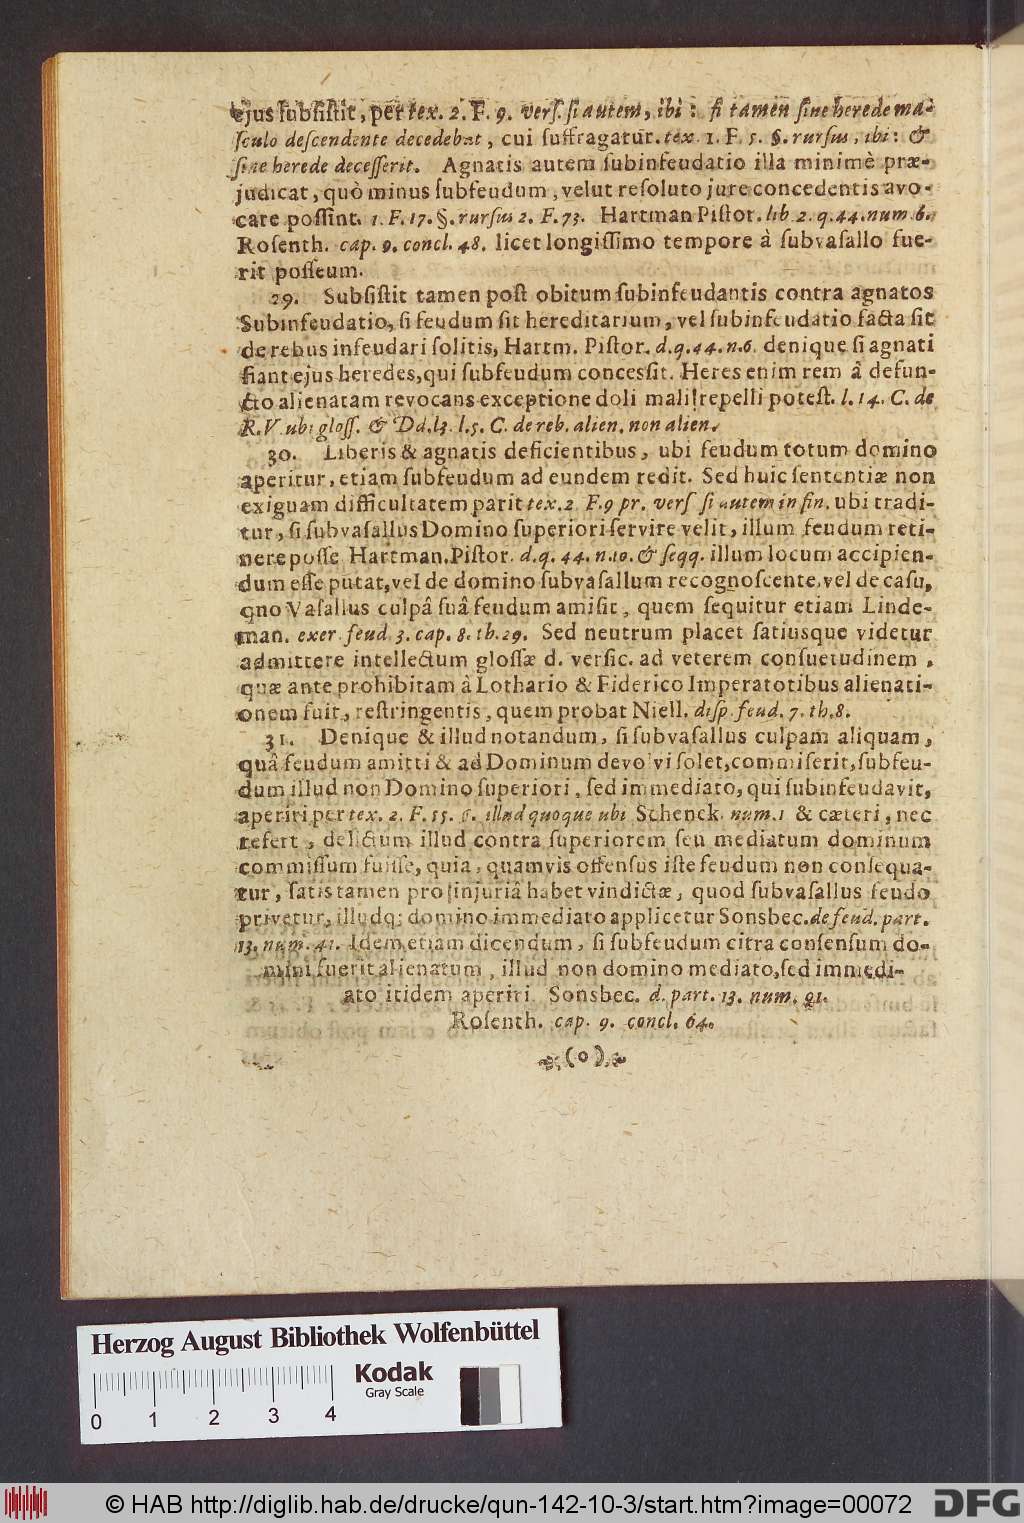 ejus subſiſtit, per tex. 2. F. 9. verſ. ſi autem, ibi: ſi tamen ſine herede ma-
ſculo deſcendente decedebat, cui ſuffragatur. tex. 1. F. 5. §. rurſus, ibi: &
ſine herede deceſſerit. Agnatis autem ſubinfeudatio illa minimè præ-
judicat, quò minus ſubfeudum, velut reſoluto jure concedentis avo-
care poſſint. 1. F. 17. §. rurſus 2. F. 73. Hartman Piſtor. lib 2. q. 44. num. 6.
Roſenth. cap. 9. concl. 48. licet longiſſimo tempore à ſubvaſallo fue-
rit poſſeum.
29. Subſiſtit tamen poſt obitum ſubinfeudantis contra agnatos
Subinfeudatio, ſi feudum ſit hereditarium, vel ſubinfeudatio facta ſit
de rebus infeudari ſolitis, Hartm. Piſtor. d. q. 44. n. 6. denique ſi agnati
fiant ejus heredes, qui ſubfeudum conceſſit. Heres enim rem â defun-
cto alienatam revocans exceptione doli mali repelli poteſt. l. 14. C. de
R. V. ubi gloſſ. & Dd. l3. l. 5. C. de reb. alien. non alien.
30. Liberis & agnatis deficientibus, ubi feudum totum domino
aperitur, etiam ſubfeudum ad eundem redit. Sed huic ſententiæ non
exiguam difficultatem parit tex. 2 F. 9 pr. verſ ſi autem in fin. ubi tradi-
tur, ſi ſubvaſallus Domino ſuperiori ſervire velit, illum feudum reti-
nere poſſe Hartman. Piſtor. d. q. 44. n. 10. & ſeqq. illum locum accipien-
dum eſſe putat, vel de domino ſubvaſallum recognoſcente, vel de caſu,
quo Vaſallus culpâ ſuâ feudum amiſit, quem ſequitur etiam Linde-
man. exer. feud. 3. cap. 8. th. 29. Sed neutrum placet ſatiusque videtur
admittere intellectum gloſſæ d. verſic. ad veterem conſuetudinem,
quæ ante prohibitam à Lothario & Fiderico Imperatotibus alienati-
onem fuit, reſtringentis, quem probat Niell. diſp. feud. 7. th. 8.
31. Denique & illud notandum, ſi ſubvaſallus culpam aliquam,
quâ feudum amitti & ad Dominum devolvi ſolet, commiſerit, ſubfeu-
dum illud non Domino ſuperiori, ſed immediato, qui ſubinfeudavit,
aperiri per tex. 2. F. 55. §. illud quoque ubi Schenck. num. 1 & cæteri, nec
refert, delictum illud contra ſuperiorem ſeu mediatum dominum
commiſſum fuiſſe, quia, quamvis offenſus iſte feudum non conſequa-
tur, ſatis tamen pro injuriâ habet vindictæ, quod ſubvaſallus feudo
privetur, illudq; domino immediato applicetur Sonsbec. de feud. part.
13. num. 41. Idem etiam dicendum, ſi ſubfeudum citra conſenſum do-
mini fuerit alienatum, illud non domino mediato, ſed immedi-
ato itidem aperiri. Sonsbec. d. part. 13. num. 91.
Roſenth. cap. 9. concl. 64.
(o)
Herzog August Bibliothek Wolfenbüttel
Kodak
Gray Scale
0 1 2 3 4
© HAB http://diglib.hab.de/drucke/qun-142-10-3/start.htm?image=00072
DFG